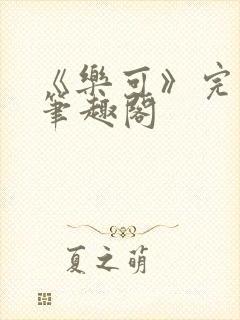 《樂可》完
筆趣閣
夏之萌